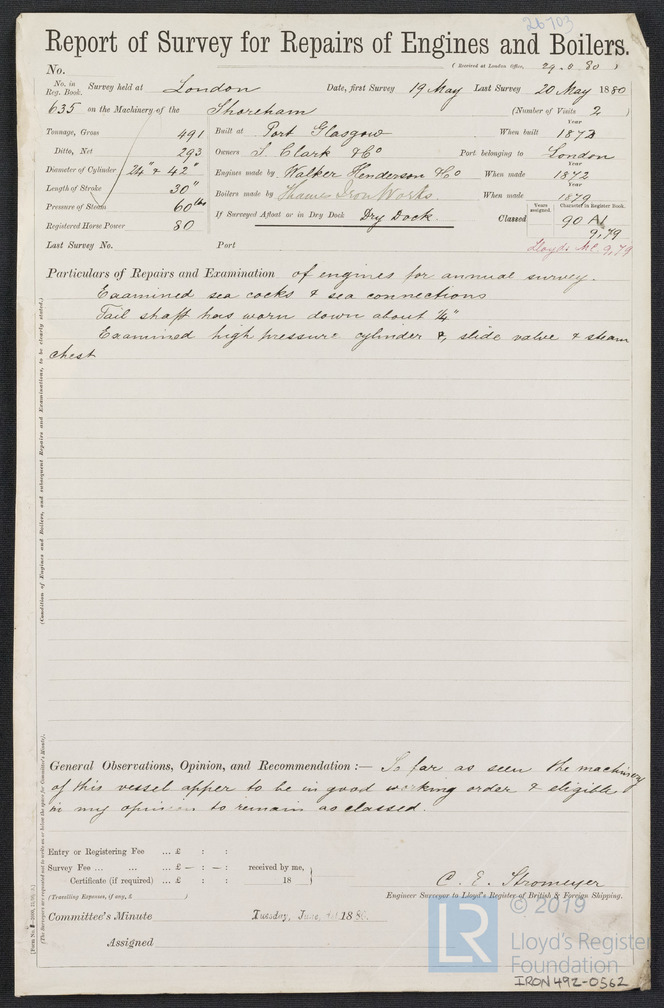 26703
Report of Survey for Repairs of Engines and Boilers.
No.
(Received at London Office, 29.5.80)
No. in Reg. Book. Survey held at London Date, first Survey 19 May Last Survey 20 May 1880
635 on the Machinery of the Shoreham (Number of Visits 2)
Tonnage, Gross 491 Built at Port Glasgow When built Year 1872
Ditto, Net 293 Owners J. Clark & Co Port belonging to London
Diameter of Cylinder 24" & 42" Engines made by Walker Henderson & Co When made Year 1872
Length of Stroke 30" Boilers made by Thames Iron Works. When made Year 1879
Pressure of Steam 60 lbs If Surveyed Afloat or in Dry Dock Dry Dock. Classed Years assigned. Character in Register Book. 90 A1
Registered Horse Power 80 9,79
Last Survey No. Port Lloyds MC 9,79
Particulars of Repairs and Examination of engines for annual survey.
Examined sea cocks & sea connections
Tail shaft has worn down about 1/4"
Examined high pressure cylinder &, slide valve & steam
chest
(Condition of Engines and Boilers, and subsequent Repairs and Examinations, to be clearly stated.)
General Observations, Opinion, and Recommendation :— So far as seen the machinery
of this vessel apper to be in good working order & eligible
in my opinion to remain as classed.
Entry or Registering Fee ... £ : :
Survey Fee ... ... ... £ — : — : received by me,
Certificate (if required) ... £ : : 18
(Travelling Expenses, if any, £ )
C. E. Stromeyer
Engineer Surveyor to Lloyd's Register of British & Foreign Shipping.
Committee's Minute Tuesday, June, 1880.
Assigned
© 2019
LR
Lloyd's Register
Foundation
IRON492-0562